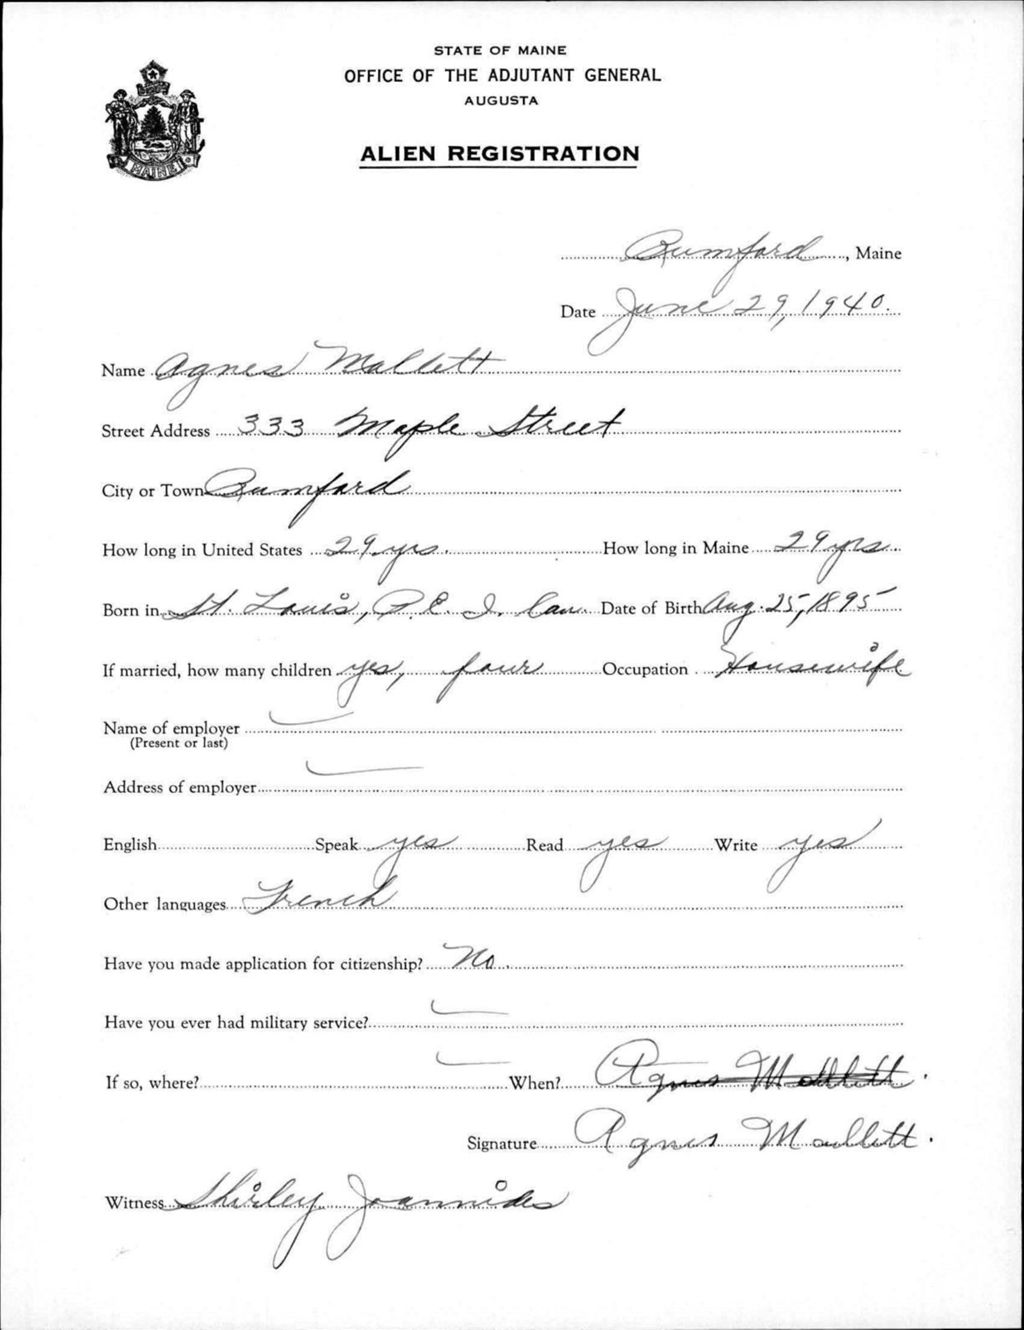 STATE OF MAINE
OFFICE OF THE ADJUTANT GENERAL
AUGUSTA
ALIEN REGISTRATION
MAINE
Rumford, Maine
Date June 29, 1940.
Name Agnes Mallett
Street Address 333 Maple Street
City or Town Rumford
How long in United States 29 yrs. How long in Maine 29 yrs.
Born in St. Louis, P.E.I. Can. Date of Birth Aug. 25, 1895
If married, how many children yes, four Occupation Housewife
Name of employer
(Present or last)
Address of employer
English Speak yes Read yes Write yes
Other languages French
Have you made application for citizenship? No.
Have you ever had military service?
If so, where? When? Agnes Mallett.
Signature Agnes Mallett.
Witness Shirley Joannides